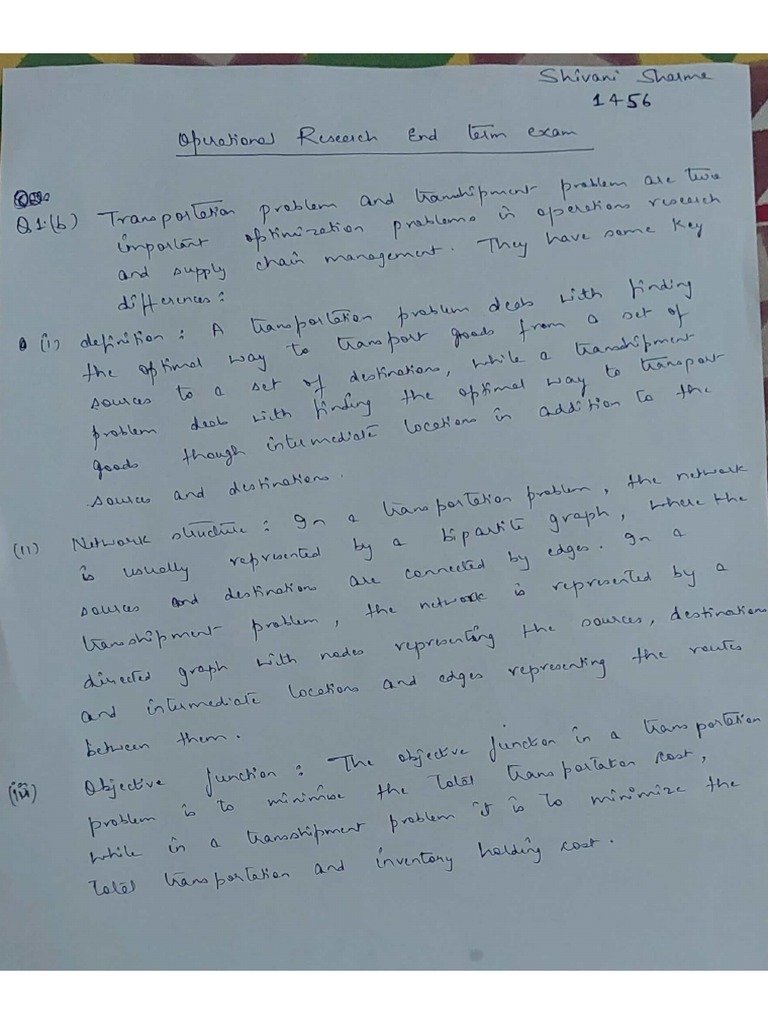 Shivani Sharma
1456
Operational Research End term exam
Q.1.(b) Transportation problem and transhipment problem are two
important optimization problems in operations research
and supply chain management. They have some key
differences:
(i) definition: A transportation problem deals with finding
the optimal way to transport goods from a set of
sources to a set of destinations, while a transhipment
problem deals with finding the optimal way to transport
goods though intermediate locations in addition to the
sources and destinations.
(ii) Network structure: In a transportation problem, the network
is usually represented by a bipartite graph, where the
sources and destinations are connected by edges. In a
transshipment problem, the network is represented by a
directed graph with nodes representing the sources, destinations
and intermediate locations and edges representing the routes
between them.
(iii) Objective function: The objective function in a transportation
problem is to minimise the total transportation cost,
while in a transshipment problem it is to minimize the
total transportation and inventory holding cost.